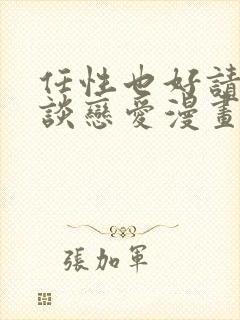 任性也好請
談戀愛漫畫
張加軍